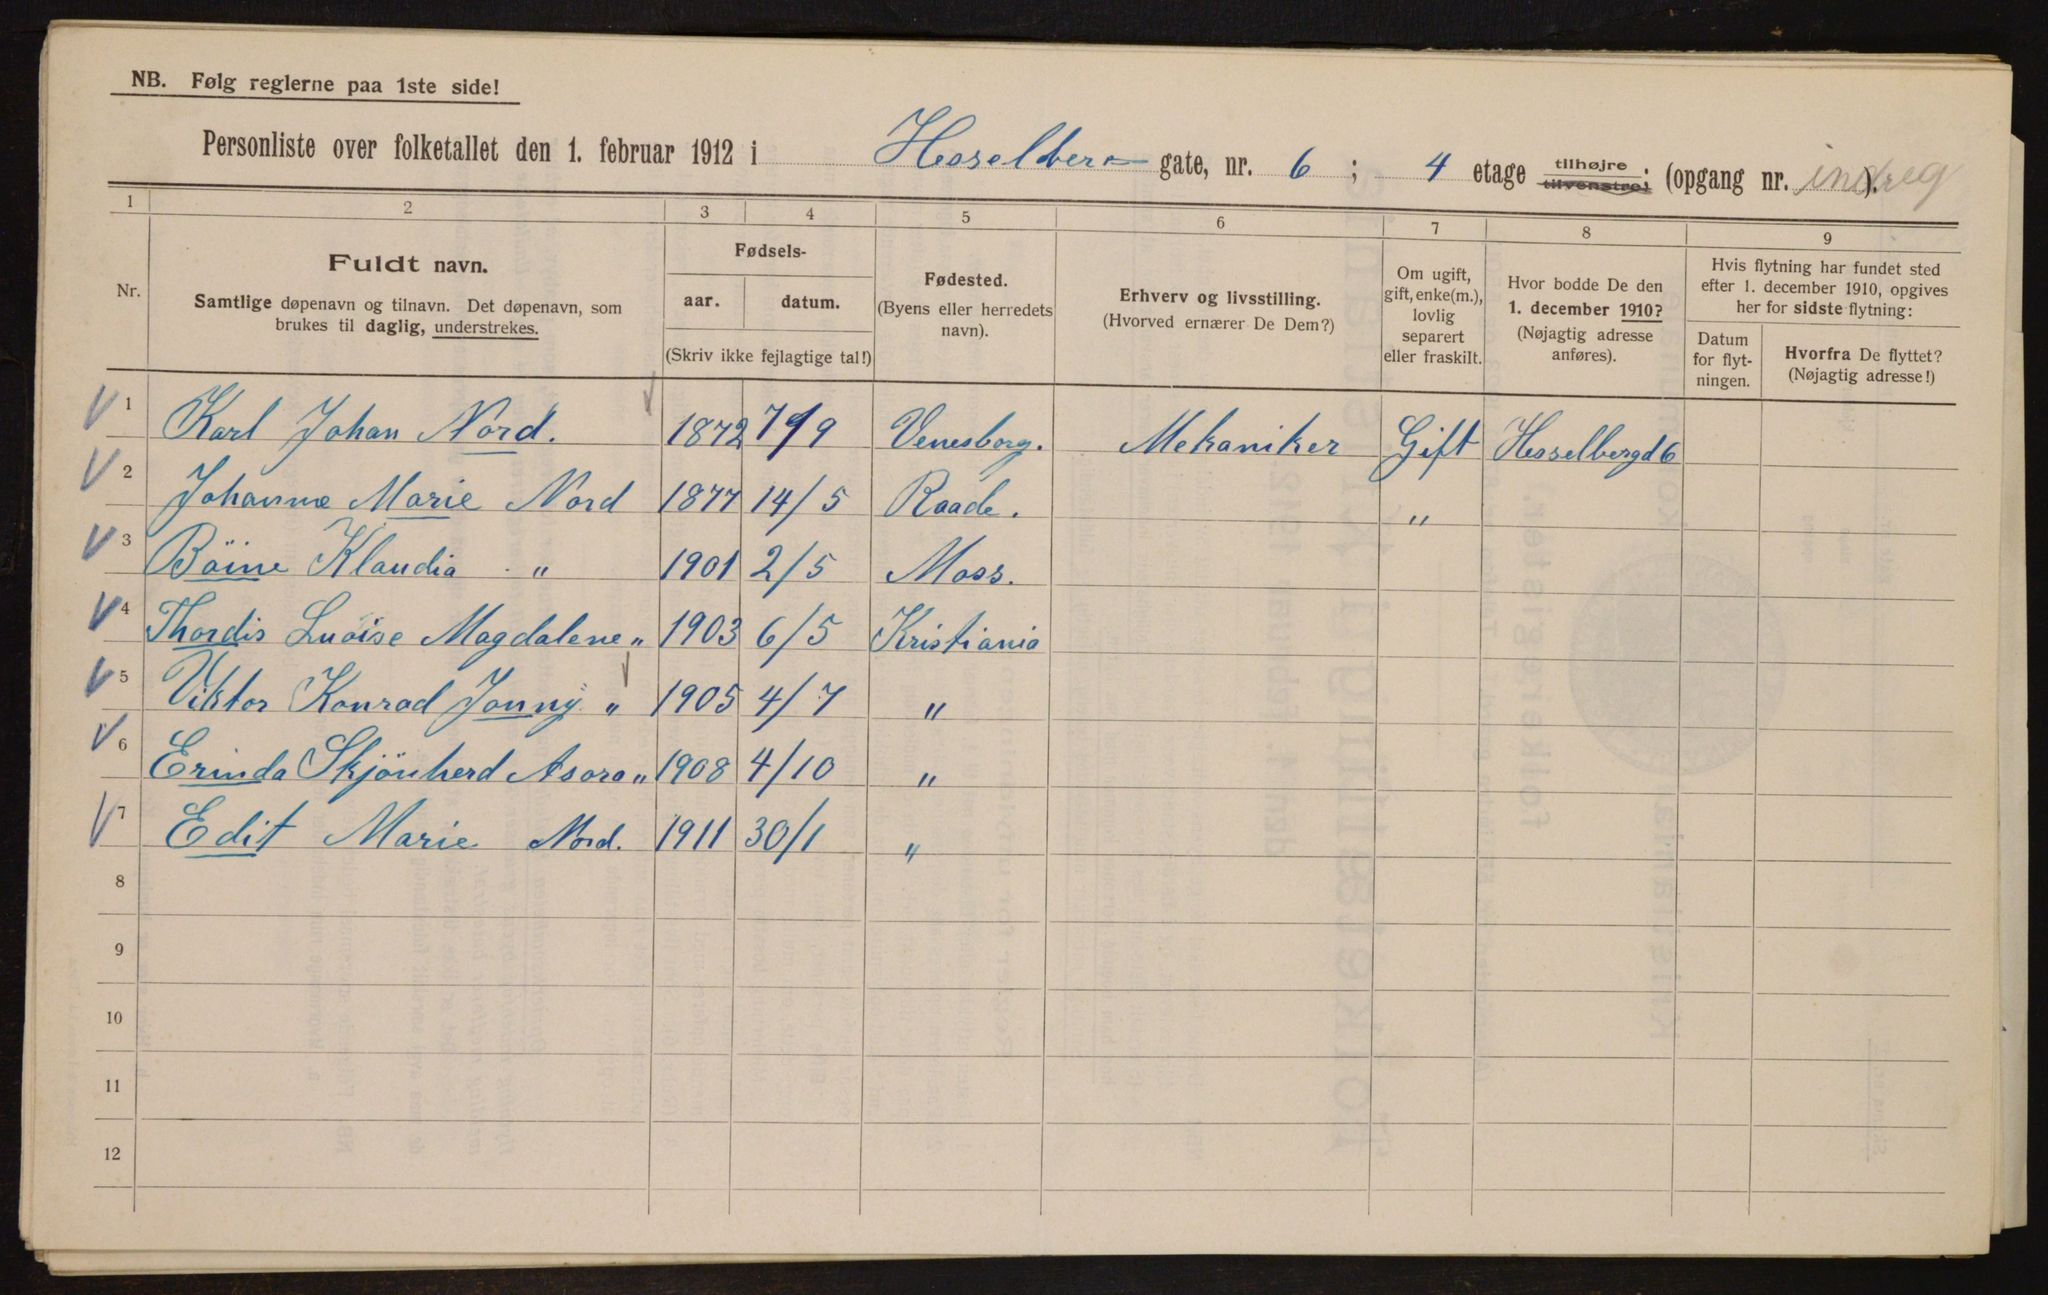 NB. Følg reglerne paa 1ste side!
Personliste over folketallet den 1. februar 1912 i Hesselberg gate, nr. 6 ; 4 etage tilhøjre. tilvenstre. (opgang nr. indreg ).
1 2 3 4 5 6 7 8 9
Nr.
Fuldt navn.
Samtlige døpenavn og tilnavn. Det døpenavn, som
brukes til daglig, understrekes.
Fødsels-
aar. datum.
(Skriv ikke fejlagtige tal!)
Fødested.
(Byens eller herredets
navn).
Erhverv og livsstilling.
(Hvorved ernærer De Dem?)
Om ugift,
gift, enke(m.),
lovlig
separert
eller fraskilt.
Hvor bodde De den
1. december 1910?
(Nøjagtig adresse
anføres).
Hvis flytning har fundet sted
efter 1. december 1910, opgives
her for sidste flytning:
Datum
for flyt-
ningen.
Hvorfra De flyttet?
(Nøjagtig adresse!)
1 Karl Johan Nord. 1872 /9 Venesborg. Mekaniker Gift Hesselbergd 6
2 Johanne Marie Nord 1877 14/5 Raade. "
3 Böine Klaudia " 1901 2/5 Moss.
4 Thordis Luoise Magdalene " 1903 6/5 Kristiania
5 Viktor Konrad Jonny " 1905 4/7 "
6 Erinda Skjönherd Asora " 1908 4/10 "
7 Edit Marie Nord. 1911 30/1 "
8
9
10
11
12